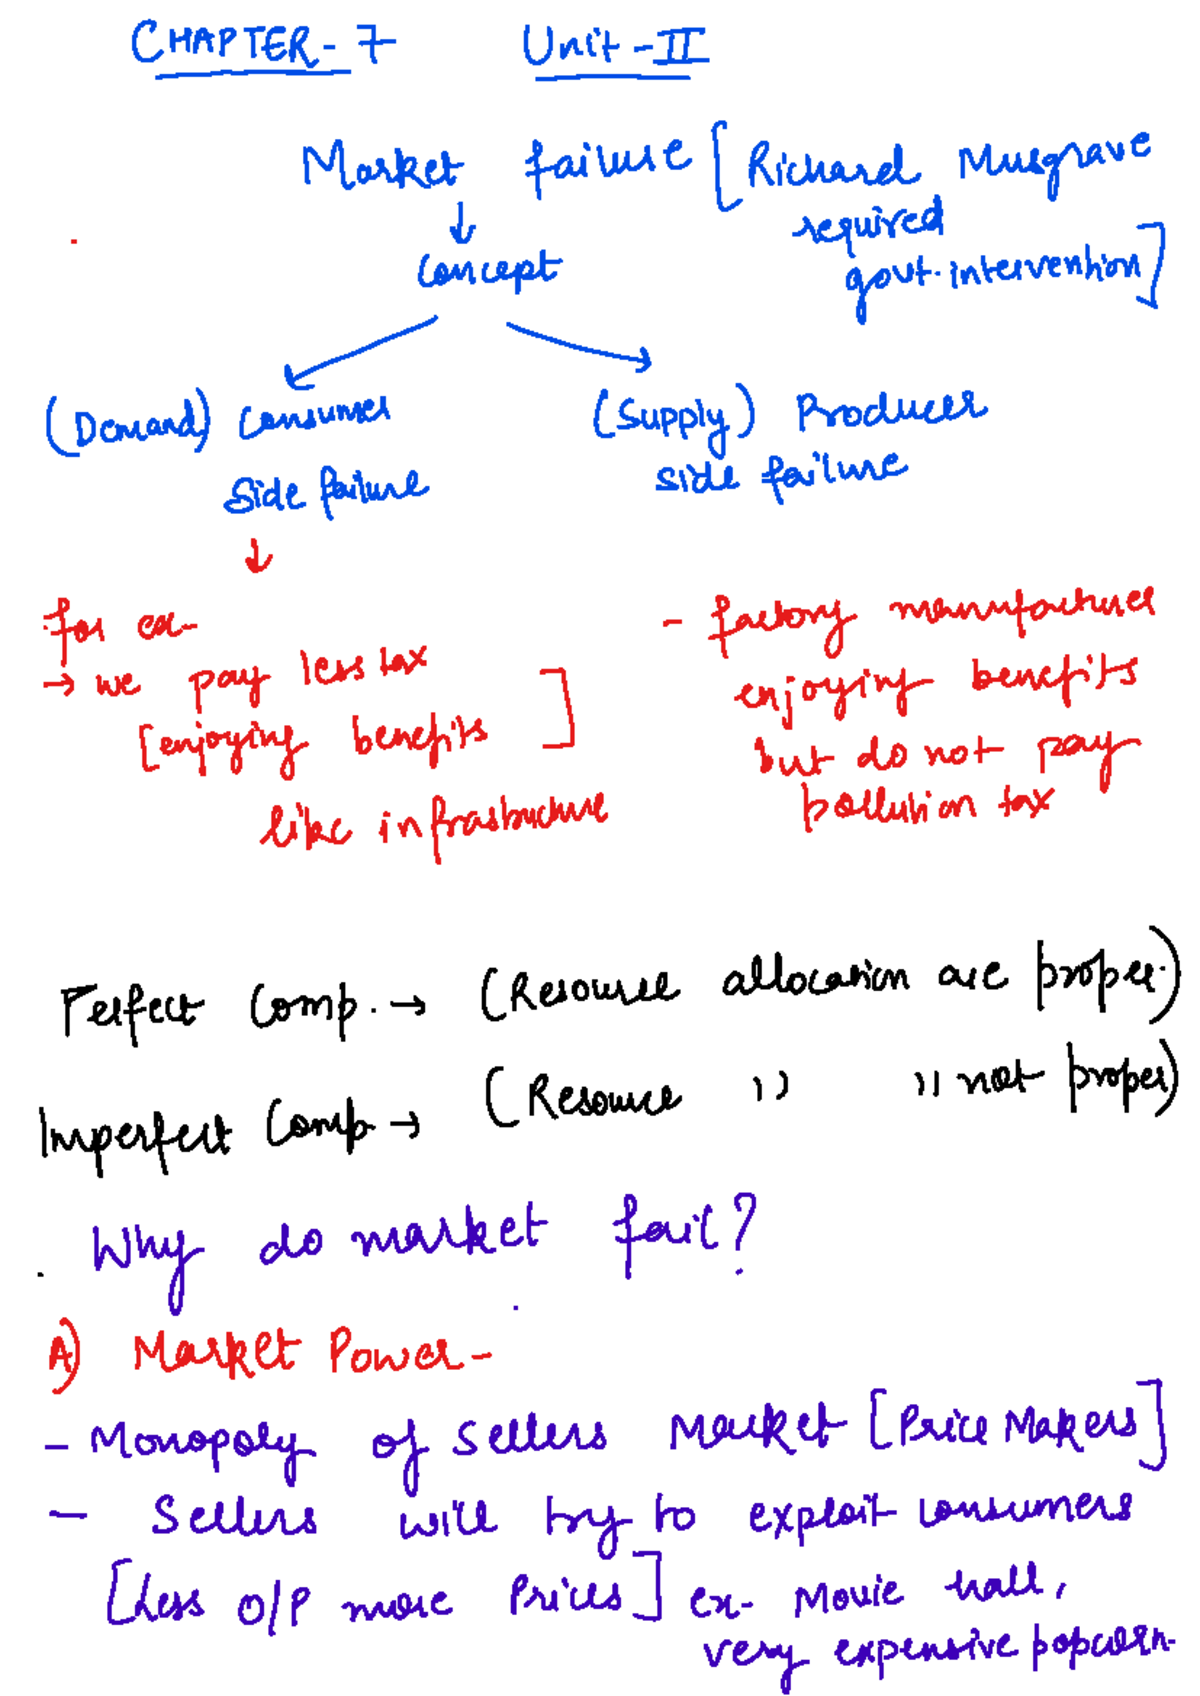 CHAPTER-7 Unit-II
Market failure [Richard Musgrave
required
govt. intervention]
Concept
(Demand) Consumer
Side failure
(Supply) Producer
side failure
for ex-
→ we pay less tax
[enjoying benefits]
like infrastructure
- factory manufacturer
enjoying benefits
but do not pay
pollution tax
Perfect Comp. → (Resource allocation are proper.)
Imperfect Comp → (Resource " " not proper)
Why do market fail?
A) Market Power-
- Monopoly of Sellers Market [Price Makers]
- Sellers will try to exploit consumers
[Less O/P more Prices] ex- Movie hall,
very expensive popcorn.